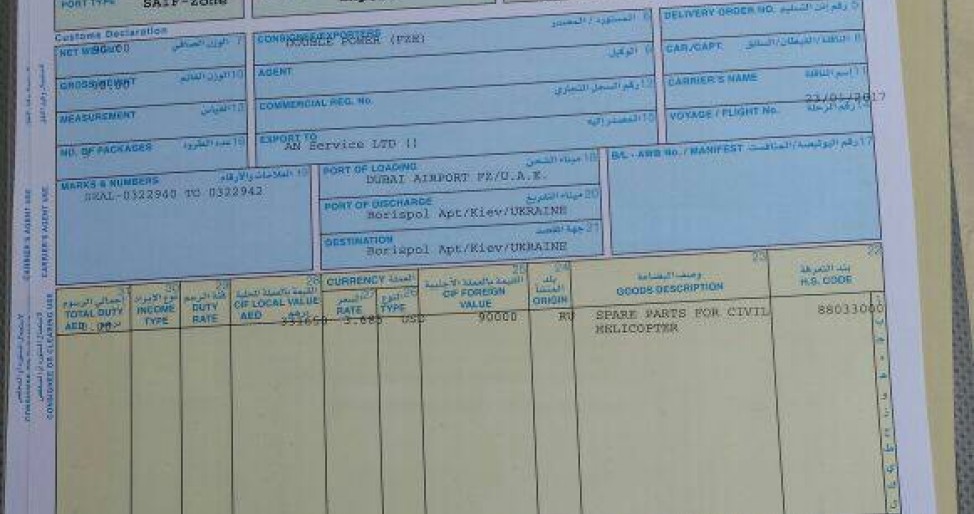 PORT TYPE SAIF-Zone
Customs Declaration
NET WEIGHT 90.00 الوزن الصافي 7
CONSIGNEE/EXPORTERS المستورد / المصدر 6
DOUBLE POWER (FZE)
DELIVERY ORDER NO. رقم إذن التسليم 5
GROSS WEIGHT 90.00 الوزن القائم 10
AGENT الوكيل 9
CAR/CAPT. 8
MEASUREMENT القياس 13
COMMERCIAL REG. No. رقم السجل التجاري 12
CARRIER'S NAME إسم الناقلة 11
23/01/2017
NO. OF PACKAGES عدد الطرود 16
EXPORT TO المصدر إليه 15
AN Service LTD ||
VOYAGE / FLIGHT No. رقم الرحلة 14
MARKS & NUMBERS العلامات والأرقام 19
SEAL-0322940 TO 0322942
PORT OF LOADING ميناء الشحن 18
DUBAI AIRPORT FZ/U.A.E.
B/L - AWB No. / MANIFEST 17
PORT OF DISCHARGE ميناء التفريغ 20
Borispol Apt/Kiev/UKRAINE
DESTINATION جهة القصد 21
Borispol Apt/Kiev/UKRAINE
إجمالي الرسوم TOTAL DUTY AED
30 نوع الايراد INCOME TYPE
29 فئة الرسم DUTY RATE
28 القيمة بالعملة المحلية CIF LOCAL VALUE AED درهم
CURRENCY العملة
السعر 27 RATE
النوع 26 TYPE
25 القيمة بالعملة الأجنبية CIF FOREIGN VALUE
24 بلد المنشأ ORIGIN
23 وصف البضاعة GOODS DESCRIPTION
22 بند التعرفة H.S. CODE
331650 3.685 USD 90000 RU SPARE PARTS FOR CIVIL 88033000
HELICOPTER
CARRIER'S AGENT USE
CARRIER'S AGENT USE
CONSIGNEE OR CLEARING USE